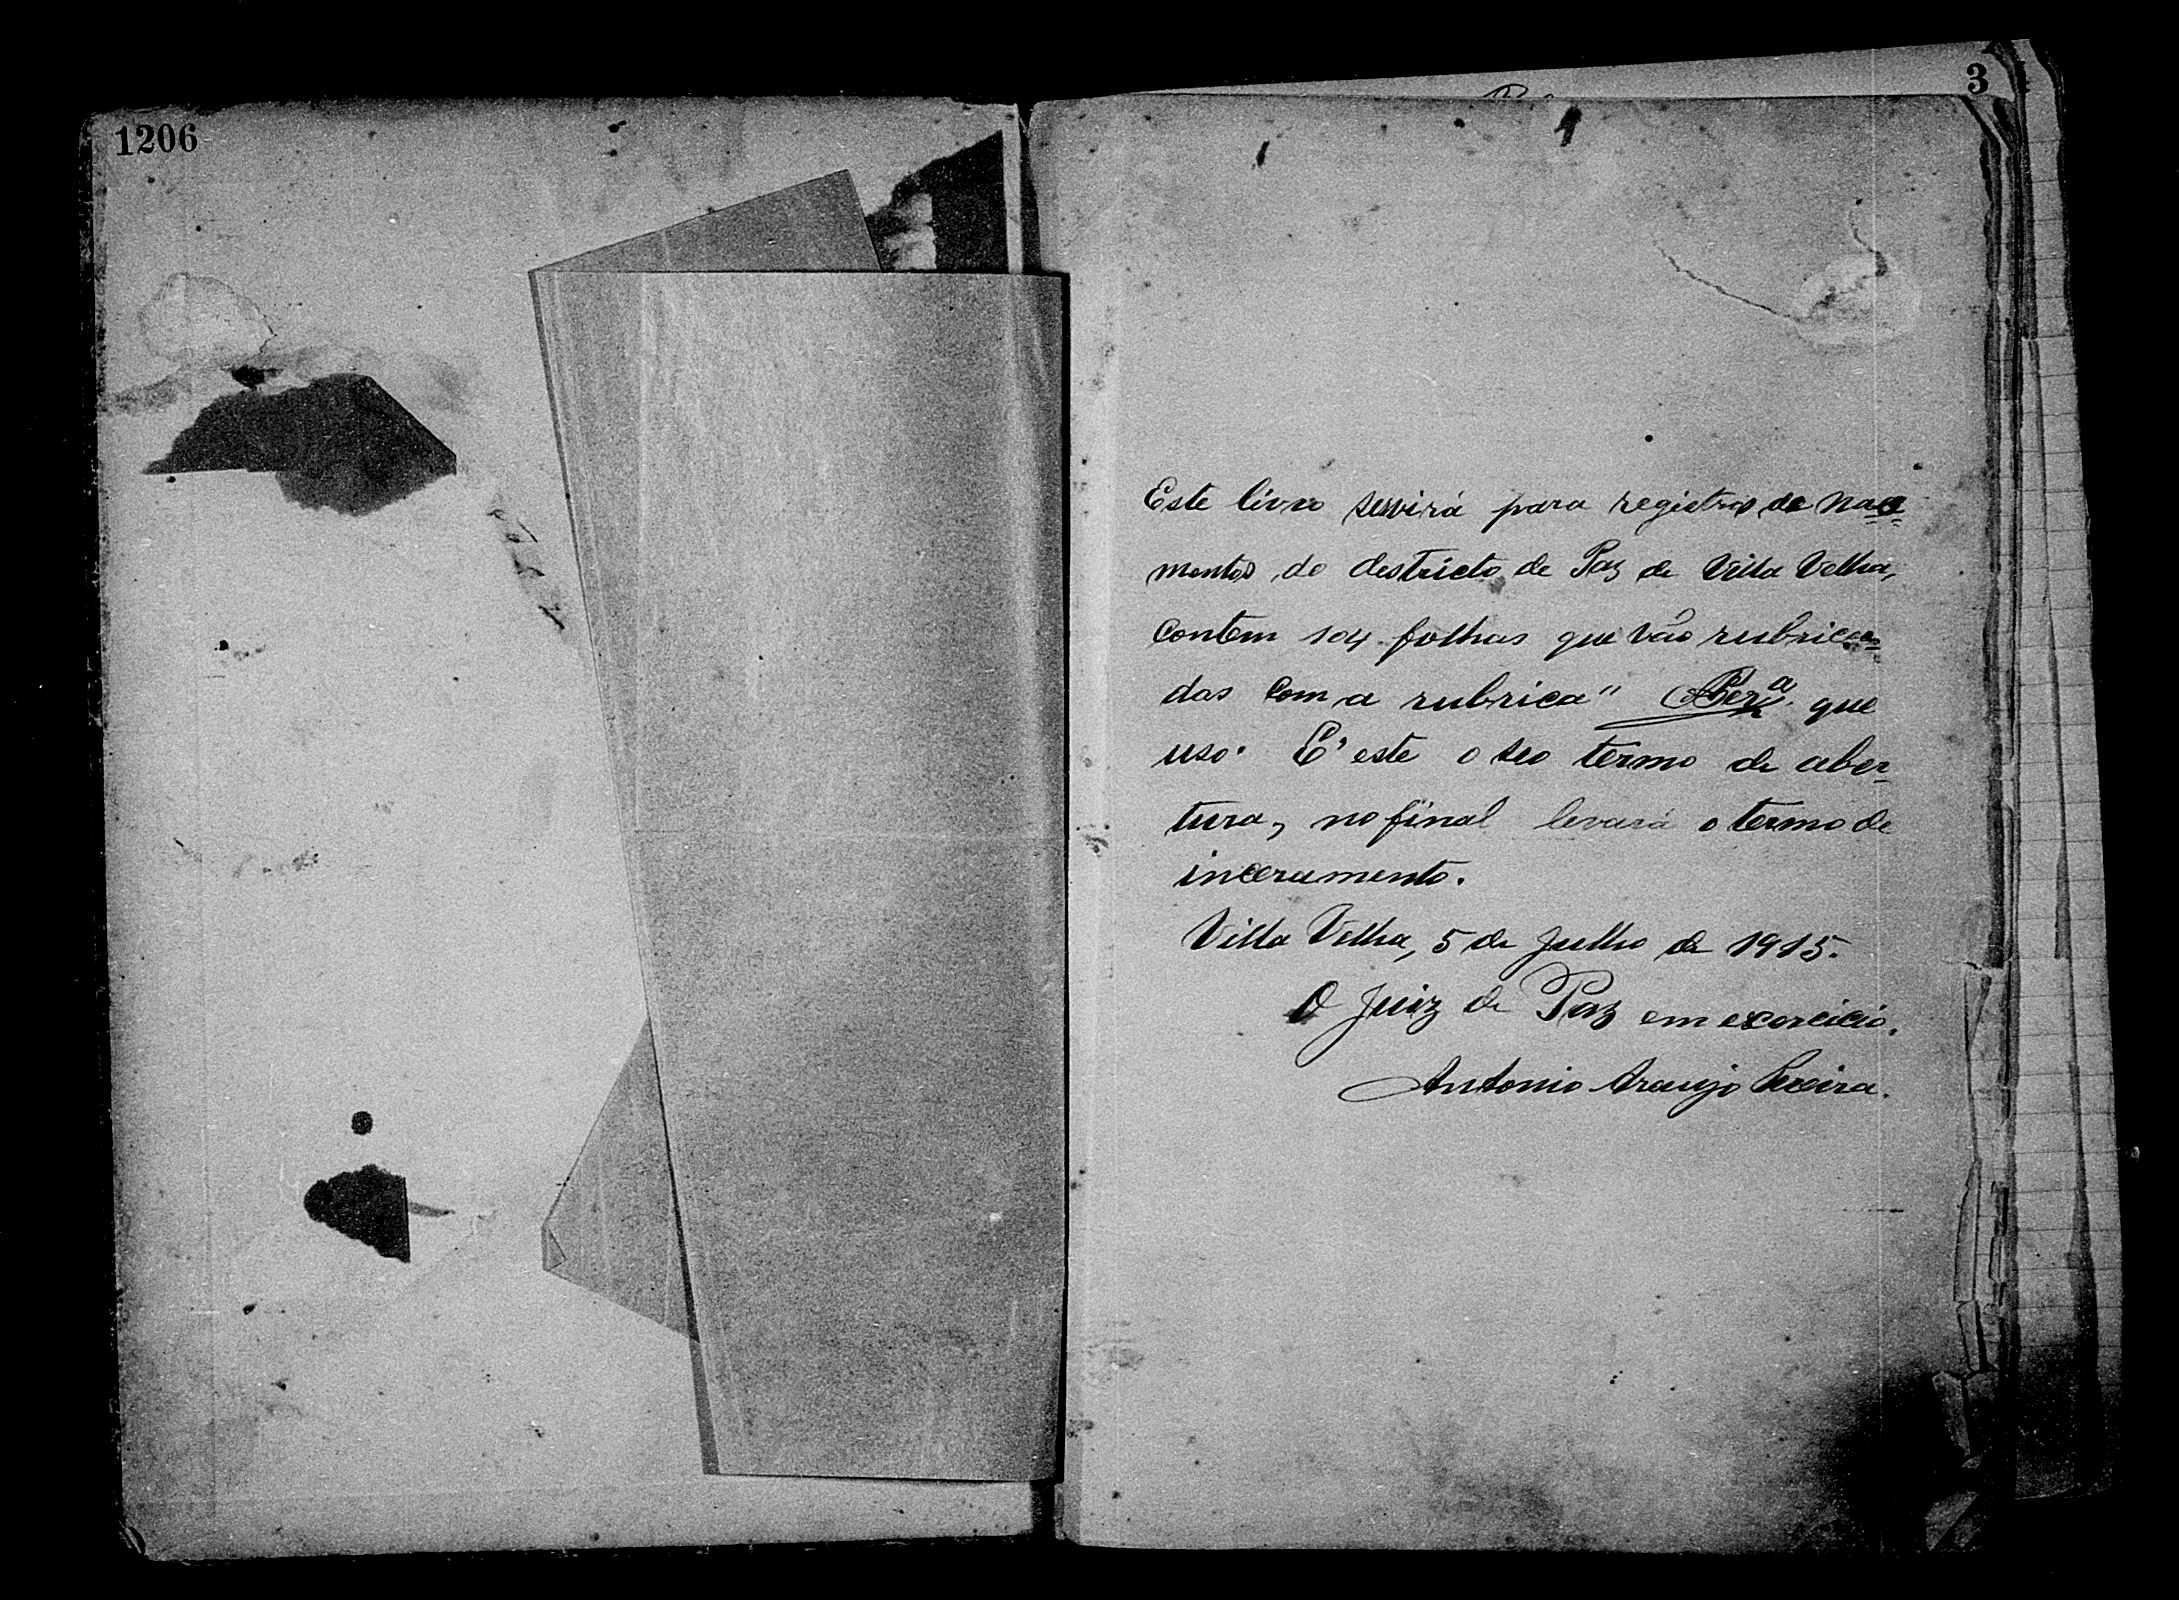 1206
3
Este livro servirá para registros de nas=
mentos do destricto de Paz de Villa Velha,
contem 104 folhas que vão rubrica=
das com a rubrica" que
uso. E' este o seo termo de aber-
tura, no final levará o termo de
inceramento.
Villa Velha, 5 de Julho de 1915.
O Juiz de Paz em exercicio.
Antonio Araujo Pereira.